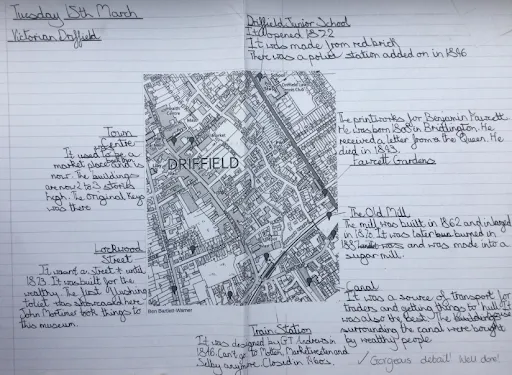 Tuesday 15th March
Victorian Driffield
Driffield Junior School
It opened 1872
It was made from red brick
There was a police station added on in 1846
Town
centre
It used to be a
market place and is
now. The buildings
are now 2 to 3 stories
high. The original Keys
was there
DRIFFIELD
The printworks for Benjamin Fawcett.
He was born 1808 in Bridlington. He
received a letter from the Queen. He
died in 1893.
Fawcett Gardens
The Old Mill
The mill was built in 1862 and enlarged
in It was later burned in
and was made into a
sugar mill.
Lockwood
Street
It wasn't a street until
1873. It was built for the
wealthy. The first flushing
toilet was showcased here
John Mortimer took things to
this museum.
Ben Bartlett-Warner
Canal
It was a source of transport for
traders and getting things to Hull. It
was also the best. The
surrounding the canal were bought
by wealthy people.
Train Station
It was designed by G.T Andrews in
1846. Can't go to Malton, Market weighton and
Selby anymore. Closed in 1960s.
✓ Gorgeous detail! Well done!